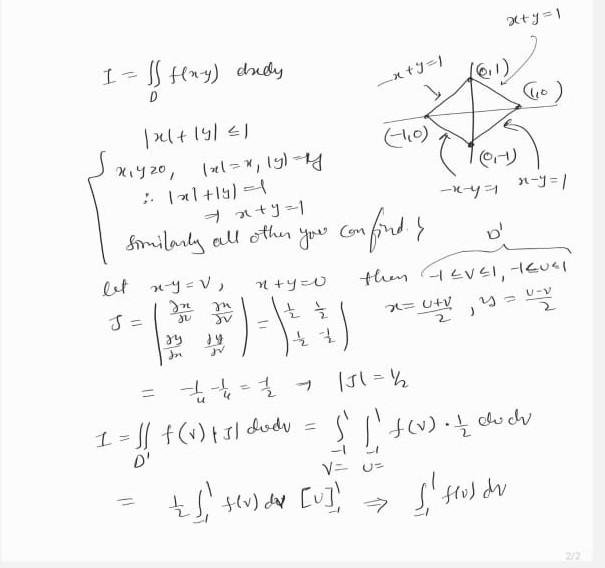 x+y=1
I = ∬_D f(x-y) dxdy
-x+y=1
(0,1)
(1,0)
|x|+|y| ≤ 1
(-1,0)
{ x,y≥0, |x|=x, |y|=y
(0,-1)
∴ |x|+|y|=1
-x-y=1
x-y=1
⇒ x+y=1
Similarly all other you can find. }
D'
let x-y=v, x+y=u then -1≤v≤1, -1≤u≤1
J = | ∂x/∂u ∂x/∂v ; ∂y/∂u ∂y/∂v | = | 1/2 1/2 ; 1/2 -1/2 |
x = (u+v)/2, y = (u-v)/2
= -1/4 -1/4 = -1/2 → |J| = 1/2
I = ∬_D' f(v) |J| dudv = ∫_{v=-1}^{1} ∫_{u=-1}^{1} f(v) · 1/2 du dv
= 1/2 ∫_{-1}^{1} f(v) dv [u]_{-1}^{1} ⇒ ∫_{-1}^{1} f(v) dv
2/2